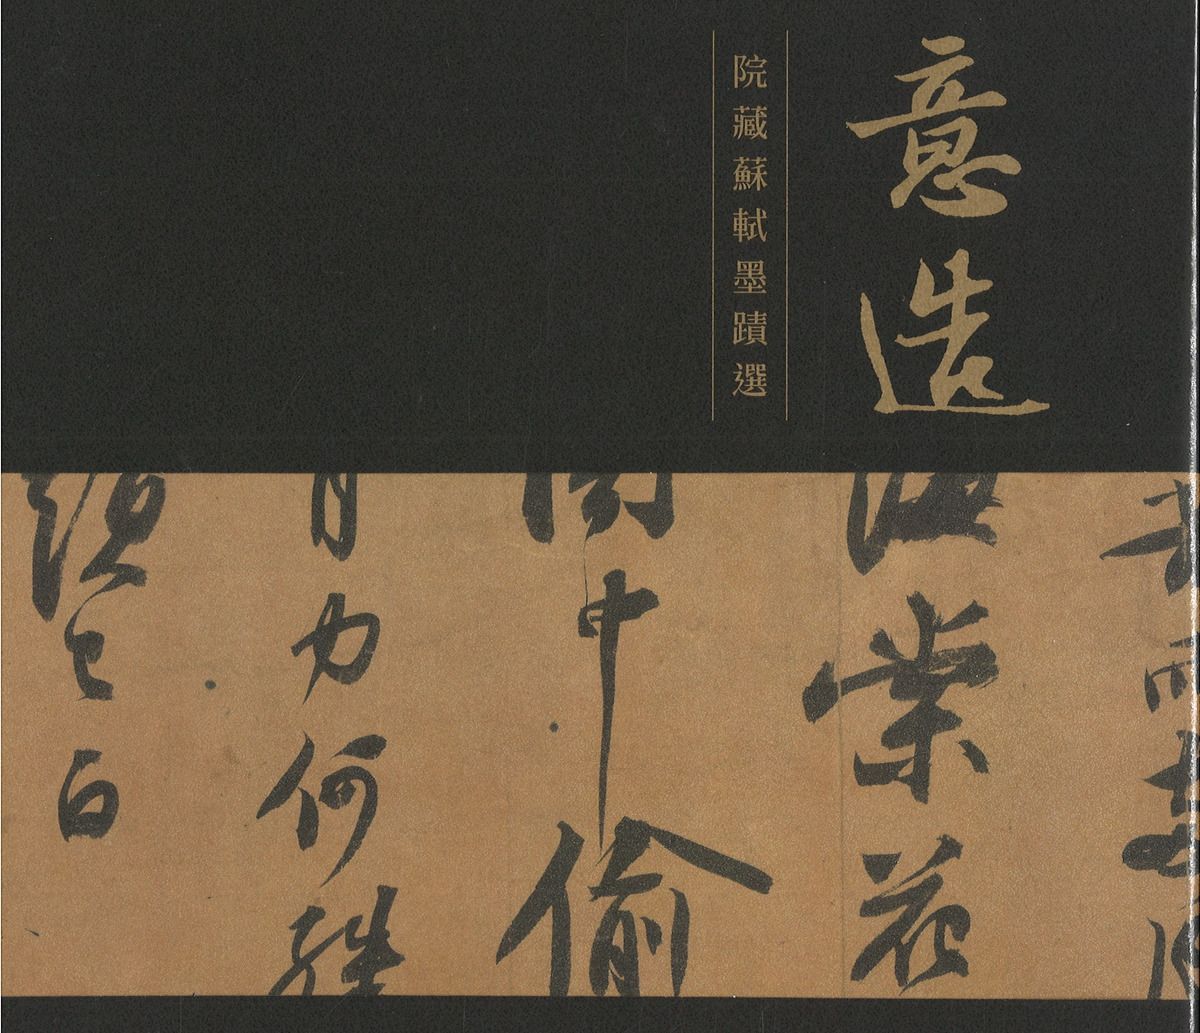 意造
院藏蘇軾墨蹟選
海棠花
中偷
有力何殊
頭已白